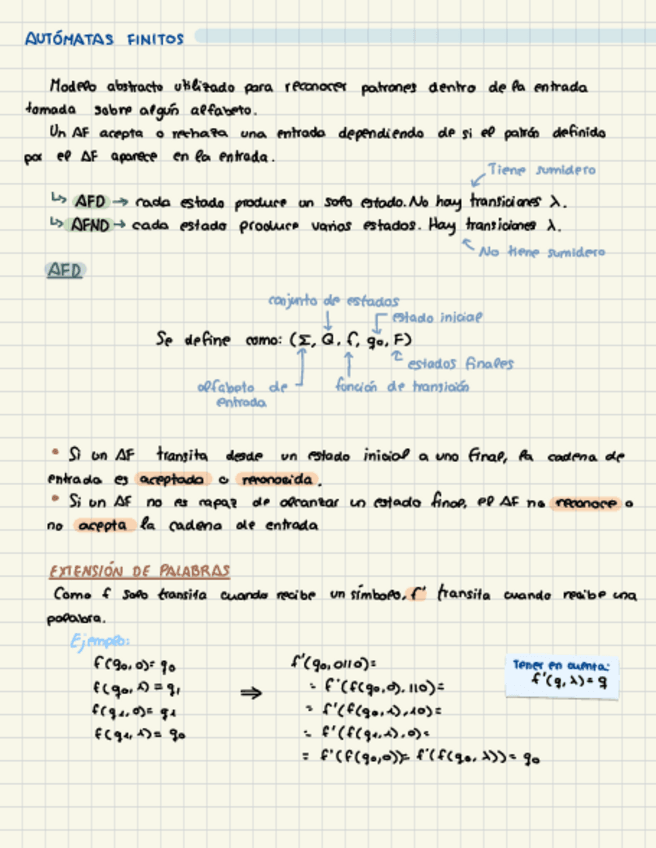 AUTÓMATAS FINITOS
Modelo abstracto utilizado para reconocer patrones dentro de la entrada
tomada sobre algún alfabeto.
Un AF acepta o rechaza una entrada dependiendo de si el patrón definido
por el AF aparece en la entrada.
Tiene sumidero
↳ AFD → cada estado produce un solo estado. No hay transiciones λ.
↳ AFND → cada estado produce varios estados. Hay transiciones λ.
No tiene sumidero
AFD
conjunto de estados
estado inicial
Se define como: (Σ, Q, f, q0, F)
estados finales
alfabeto de función de transición
entrada
• Si un AF transita desde un estado inicial a uno final, la cadena de
entrada es aceptada o reconocida.
• Si un AF no es capaz de alcanzar un estado final, el AF no reconoce o
no acepta la cadena de entrada
EXTENSIÓN DE PALABRAS
Como f solo transita cuando recibe un símbolo, f' transita cuando recibe una
palabra.
Ejemplo:
f(q0, 0)= q0 f'(q0, 0110)= Tener en cuenta:
f(q0, 1)= q1 ⇒ = f'(f(q0,0), 110)= f'(q, λ)= q
f(q1, 0)= q1 = f'(f(q0,1), 10)=
f(q1, 1)= q0 = f'(f(q1,1), 0)=
= f'(f(q0,0))= f'(f(q0, λ))= q0